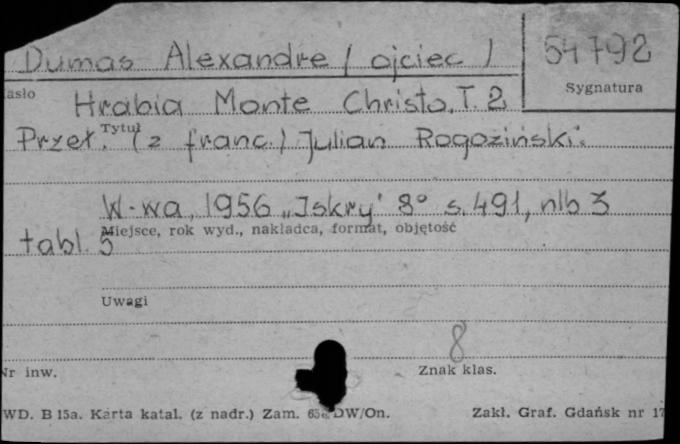 Dumas Alexandre (ojciec)
54792
Sygnatura
asło
Hrabia Monte Christo. T. 2
Tytuł
Przeł. (z franc.) Julian Rogoziński.
W-wa, 1956 „Iskry" 8° s. 491, nlb 3
Miejsce, rok wyd., nakładca, format, objętość
tabl. 5
Uwagi
8
Nr inw.
Znak klas.
WD. B 15a. Karta katal. (z nadr.) Zam. DW/On.
Zakł. Graf. Gdańsk nr 17